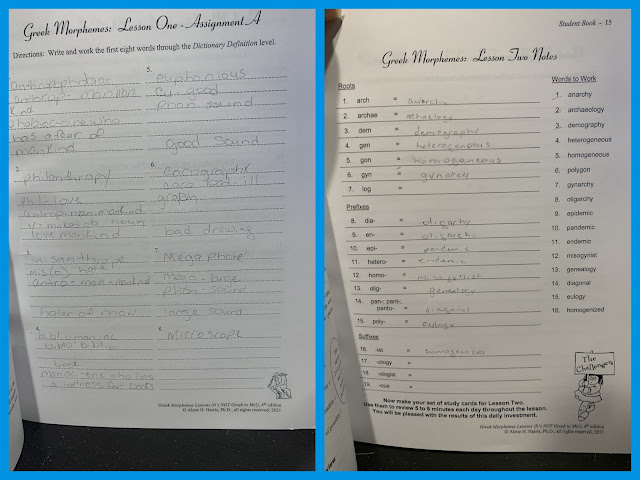 Greek Morphemes: Lesson One - Assignment A
Directions: Write and work the first eight words through the Dictionary Definition level.
mankind
has a fear of
mankind
2.
philanthropy
phil-love
love mankind
3.
misanthrope
mis(o) hate
hater of man
4.
book
maniac - one who has
a madness for books
5.
euphonious
eu-good
phon sound
good sound
6.
cacography
caco bad-ill
graph
bad drawing
7.
Megaphone
mega-large
phon-sound
large sound
8.
Microscope
Greek Morphemes Lessons (It's NOT Greek to Me!), 4th edition
© Alene H. Harris, Ph.D., all rights reserved, 2021
Student Book - 15
Greek Morphemes: Lesson Two Notes
Roots
1. arch = anarchy
2. archae =
3. dem = demography
4. gen = heterogenous
5. gon = homoganeous
6. gyn =
7. log =
Prefixes
8. dia- = oligarchy
9. en- = oligarchy
10. epi- =
11. hetero- = endemic
12. homo- =
13. olig- = genealogy
14. pan-, pant-,
panto- = diagonal
15. poly- =
Suffixes
16. -ist =
17. -ology =
18. -ologist =
19. -ous =
Words to Work
1. anarchy
2. archaeology
3. demography
4. heterogeneous
5. homogeneous
6. polygon
7. gynarchy
8. oligarchy
9. epidemic
10. pandemic
11. endemic
12. misogynist
13. genealogy
14. diagonal
15. eulogy
16. homogenized
The Challengers
Now make your set of study cards for Lesson Two.
Use them to review 5 to 8 minutes each day throughout the lesson.
You will be pleased with the results of this daily investment.
Greek Morphemes Lessons (It's NOT Greek to Me!), 4th edition
© Alene H. Harris, Ph.D., all rights reserved, 2021